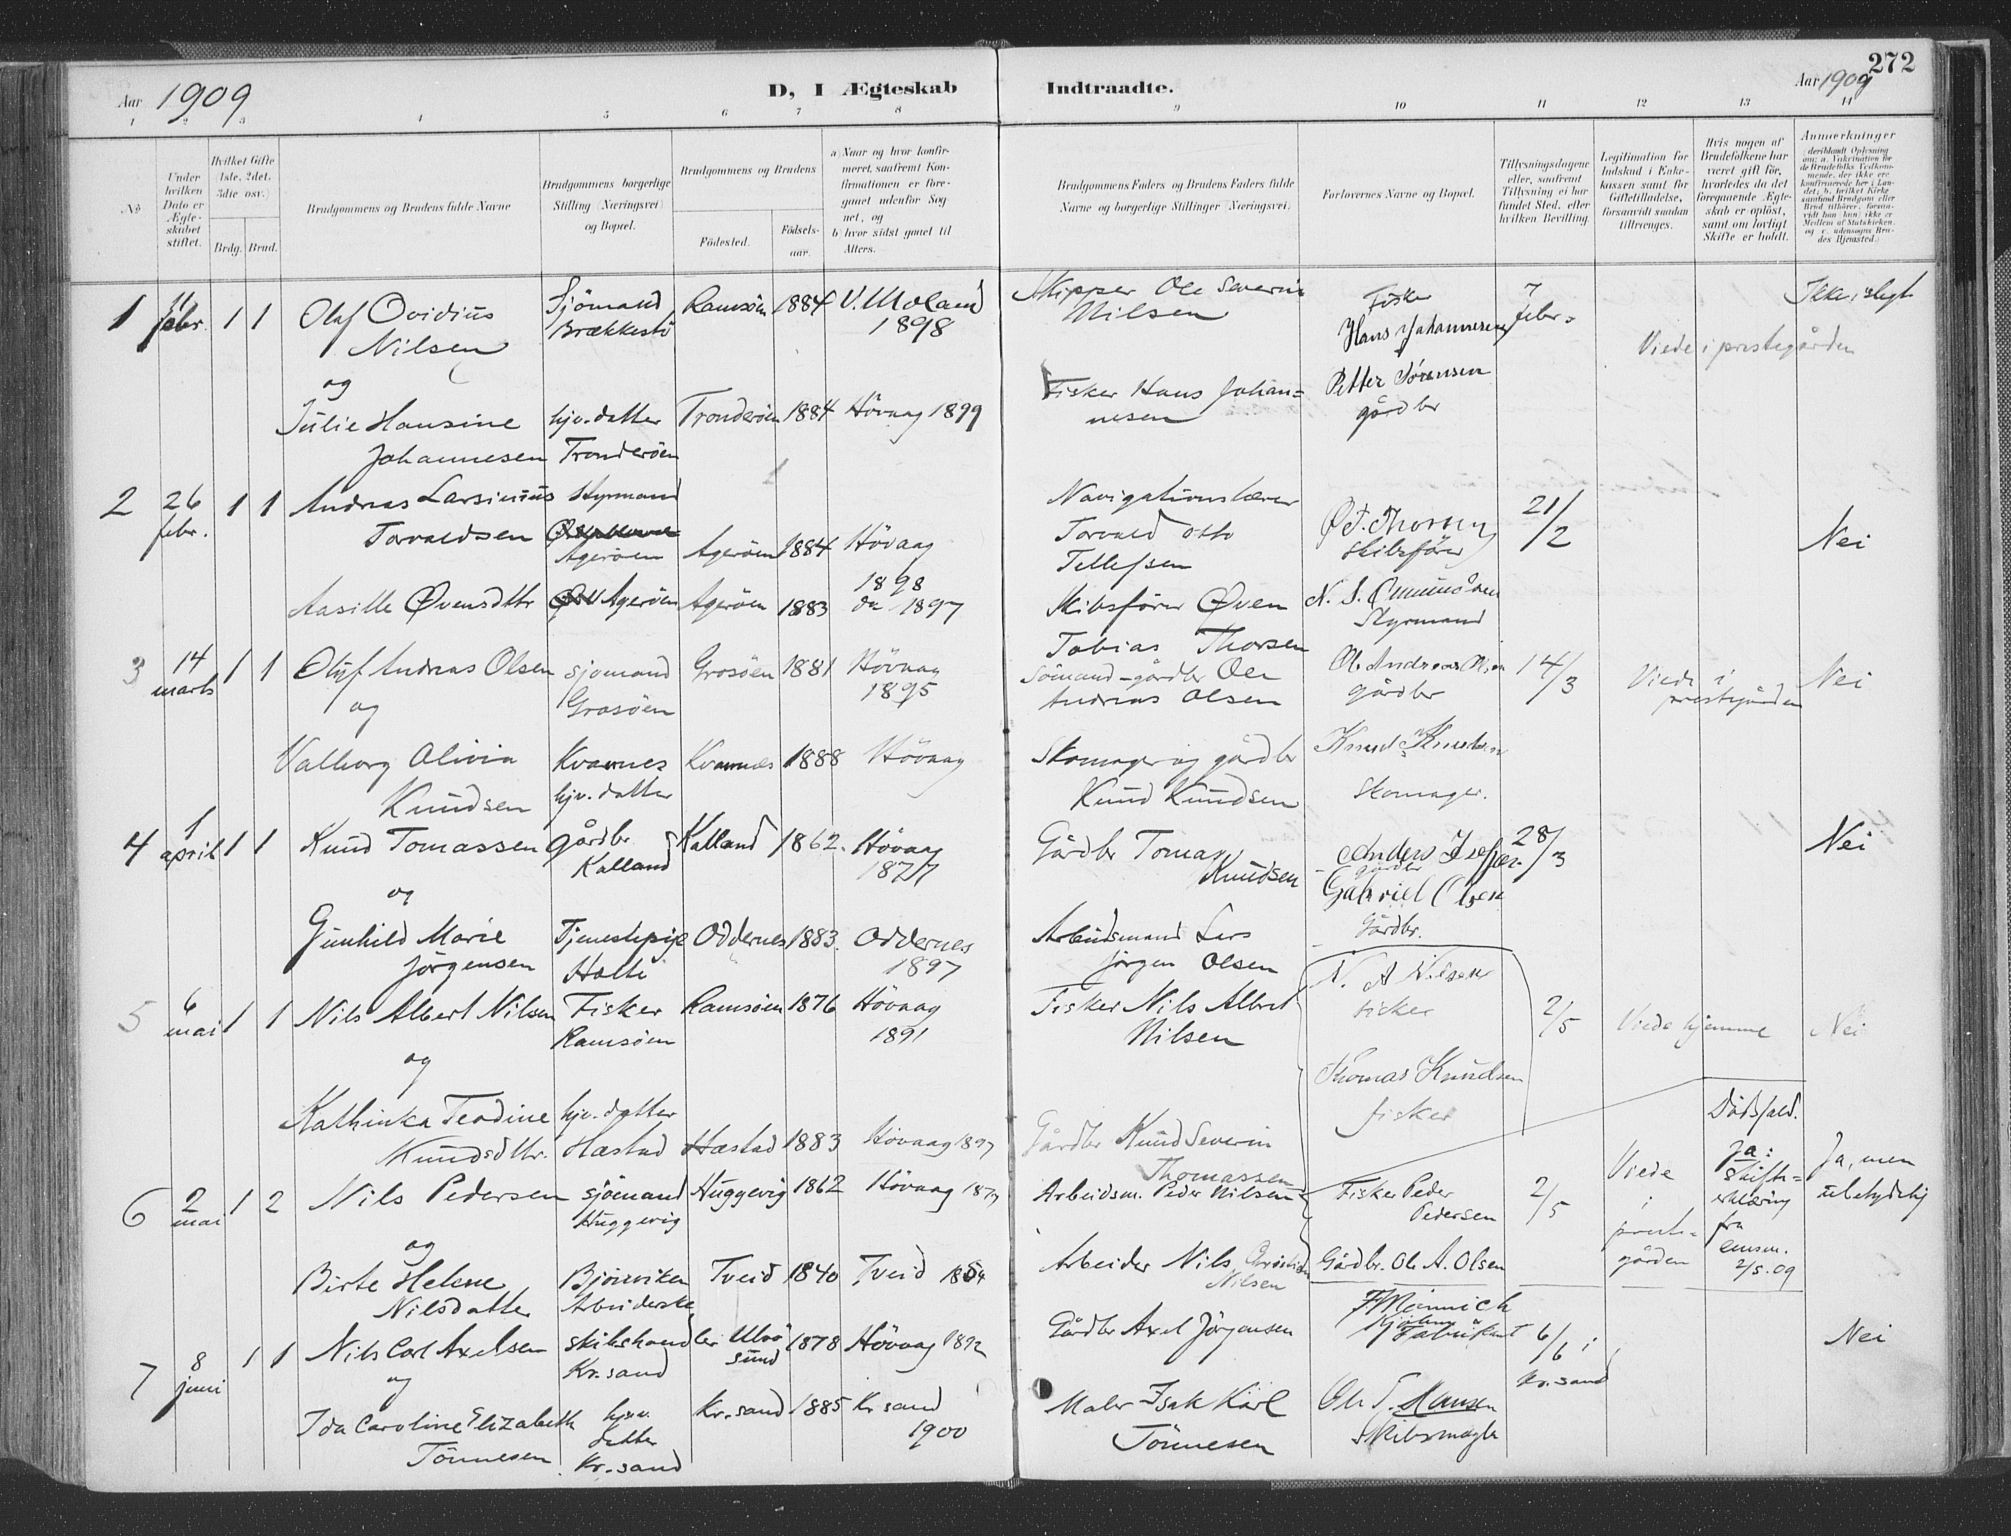 Aar 1909
D, I Ægteskab
Indtraadte.
Aar 1909
272
1 2 3 4 5 6 7 8 9 10 11 12 13 14
No
Under hvilken Dato er Ægteskabet stiftet.
Hvilket Gifte (1ste, 2det, 3die osv.)
Brdg. Brud.
Brudgommens og Brudens fulde Navne
Brudgommens borgerlige Stilling (Næringsvei) og Bopæl.
Brudgommens og Brudens
Fødested.
Fødselsaar.
a) Naar og hvor konfirmeret, saafremt Konfirmationen er foregaaet udenfor Sognet, og
b) hvor sidst gaaet til Alters.
Brudgommens Faders og Brudens Faders fulde Navne og borgerlige Stillinger (Næringsvei)
Forlovernes Navne og Bopæl.
Tillysningsdagene eller, saafremt Tillysning ei har fundet Sted, efter hvilken Bevilling.
Legitimation for Indskud i Enkekassen samt for Giftetilladelse, forsaavidt saadan tiltrænges.
Hvis nogen af Brudefolkene har været gift før, hvorledes da det foregaaende Ægteskab er opløst, samt om lovligt Skifte er holdt.
Anmærkninger
1 11 febr. 1 1 Olaf Ovidius Nilsen Sjömand Brækkestö Ramsöen 1884 V. Moland 1898
Skipper Ole Severin Nilsen Fisker Hans Johannesen 7 febr. Viede i prestegården Ikke i slegt
og
Julie Hansine Johannesen hjv. datter Tronderöen Tronderöen 1884 Hövaag 1899
Fisker Hans Johannesen Petter Sörensen gårdbr
2 26 febr. 1 1 Andreas Larsinius Torvaldsen Styrmand Ageröen Ageröen 1884 Hövaag 1898
Navigationslærer Torvald Otto Tellefsen Ø. T. Thorsen Skibsförer 21/2 Nei
Aasille Øvensdtr Ageröen Ageröen 1883 do 1897
Skibsförer Øven Tobias Thorsen N. S. Styrmand
3 14 marts 1 1 Oluf Andreas Olsen sjömand Grosöen Grosöen 1881 Hövaag 1895
Sömand - gårdbr Ole Andreas Olsen Ole Andreas Olsen gårdbr 14/3 Viede i prestegården Nei
og
Valborg Olivia Knudsen Kvarnes hjv. datter Kvarnes 1888 Hövaag
Skomager og gårdbr Knud Knudsen Knud Knudsen Skomager.
4 1 april 1 1 Knud Tomassen gårdbr Kalland Kalland 1862. Hövaag 1877
Gårdbr Tomas Knudsen Anders gårdbr 28/3 Nei
og
Gabriel Olsen Gårdbr.
Gunhild Marie Jörgensen Tjenestepige Oddernes 1883. Oddernes 1897
Arbeidsmand Lars Jörgen Olsen
5 6 mai 1 1 Nils Albert Nilsen Fisker Ramsöen Ramsöen 1876 Hövaag 1891
Fisker Nils Albert Nilsen N. A Nilsen fisker 2/5 Viede hjemme Nei
og
Kathinka Teodine Knudsdtr. hjv. datter Hæstad Hæstad 1883 Hövaag 1897
Gårdbr Knud Severin Thomassen Thomas Knudsen fisker
6 2 mai 1 2 Nils Pedersen sjömand Huggevig Huggevig 1862 Hövaag 1877
Arbeidsm. Peder Nilsen Fisker Peder Pedersen 2/5 Viede i prestegården Dödsfald. Ja: Skifteerklæring fra 2/5.09 Ja, men ubetydelig
og
Birte Helene Nilsdatter Bjönviken Arbeiderske Tveid 1840 Tveid 1854
Arbeider Nils Christian Nilsen Gårdbr. Ole A. Olsen
7 8 juni 1 1 Nils Carl Axelsen skibshandler Kr.sand Ulvösund 1878 Hövaag 1892
Gårdbr Axel Jörgensen Fabrikant 6/6 i Kr.sand Nei
og
Ida Caroline Elizabeth Tönnesen hjv. datter Kr.sand Kr.sand 1885 Kr sand 1900
Maler Isak Karl Tönnesen Ole T. Hansen Skibsmægler